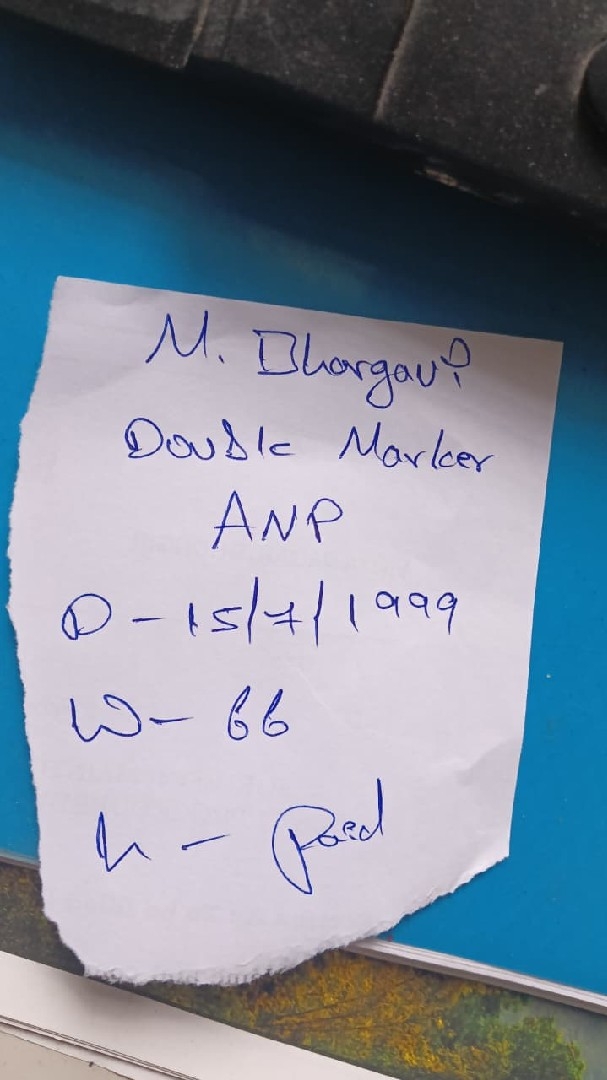 M. Bhargavi
Double Marker
ANP
D - 15/7/1999
W - 66
h - Paid